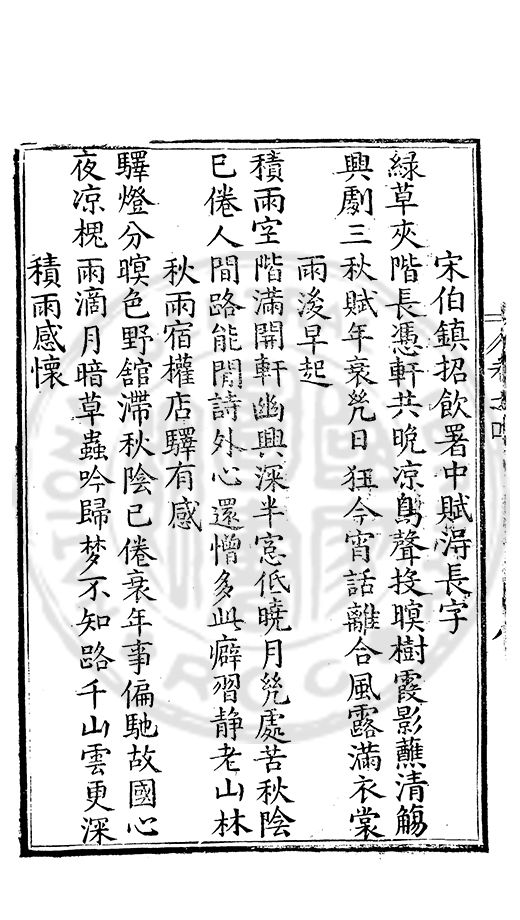 宋伯鎮招飲署中賦得長字
綠草夾階長憑軒共晚凉鳥聲投暝樹霞影蘸清觴
興劇三秋賦年衰幾日狂今宵話離合風露滿衣裳
雨後早起
積雨空階滿開軒幽興深半窓低曉月幾處苦秋陰
已倦人間路能閒詩外心還憎多此癖習静老山林
秋雨宿權店驛有感
驛燈分暝色野舘滯秋陰已倦衰年事偏馳故國心
夜凉槐雨滴月暗草蟲吟歸梦不知路千山雲更深
積雨感懷